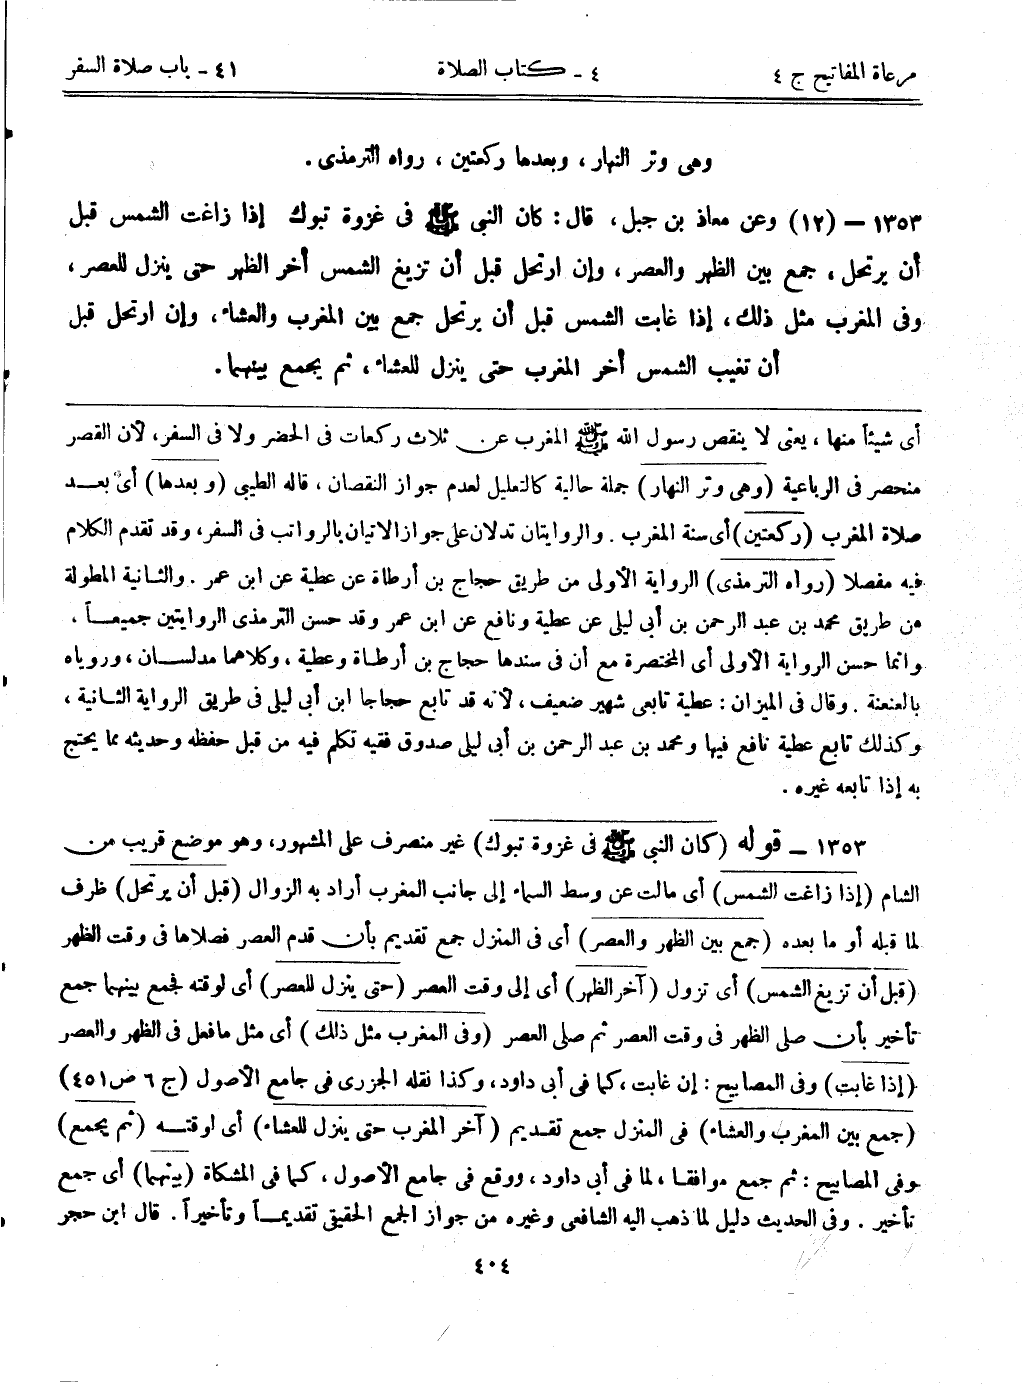 مرعاة المفاتيح ج ٤
٤ - كتاب الصلاة
٤١ - باب صلاة السفر
وهى وتر النهار ، وبعدها ركعتين ، رواه الترمذى .
١٣٥٣ – (١٢) وعن معاذ بن جبل، قال: كان النبى ﷺ فى غزوة تبوك إذا زاغت الشمس قبل
أن يرتحل ، جمع بين الظهر والعصر ، وإن ارتحل قبل أن تزيغ الشمس أخر الظهر حتى ينزل للعصر ،
وفى المغرب مثل ذلك، إذا غابت الشمس قبل أن يرتحل جمع بين المغرب والعشاء، وإن ارتحل قبل
أن تغيب الشمس أخر المغرب حتى ينزل للعشاء ، ثم يجمع بينهما .
أى شيئاً منها ، يعنى لا ينقص رسول الله ﷺ المغرب عن ثلاث ركعات فى الحضر ولا فى السفر، لأن القصر
منحصر فى الرباعية (وهى وتر النهار) جملة حالية كالتعليل لعدم جواز النقصان ، قاله الطيبى (و بعدها) أى بعد
صلاة المغرب (ركعتين) أى سنة المغرب . والروايتان تدلان على جواز الاتيان بالرواتب فى السفر، وقد تقدم الكلام
فيه مفصلا (رواه الترمذى) الرواية الأولى من طريق حجاج بن أرطاة عن عطية عن ابن عمر . والثانية المطولة
من طريق محمد بن عبد الرحمن بن أبى ليلى عن عطية ونافع عن ابن عمر وقد حسن الترمذى الروايتين جميعاً ،
وانما حسن الرواية الأولى أى المختصرة مع أن فى سندها حجاج بن أرطاة وعطية ، وكلاهما مدلسان ، ورو‌ياه
بالعنعنة . وقال فى الميزان : عطية تابعى شهير ضعيف ، لأنه قد تابع حجاجا ابن أبى ليلى فى طريق الرواية الثانية ،
وكذلك تابع عطية نافع فيها ومحمد بن عبد الرحمن بن أبى ليلى صدوق فقيه تكلم فيه من قبل حفظه وحديثه مما يحتج
به إذا تابعه غيره .
١٣٥٣ – قوله (كان النبى ﷺ فى غزوة تبوك) غير منصرف على المشهور، وهو موضع قريب من
الشام (إذا زاغت الشمس) أى مالت عن وسط السماء إلى جانب المغرب أراد به الزوال (قبل أن يرتحل) ظرف
لما قبله أو ما بعده (جمع بين الظهر والعصر) أى فى المنزل جمع تقديم بأن قدم العصر فصلاها فى وقت الظهر
(قبل أن تزيغ الشمس) أى تزول (آخر الظهر) أى إلى وقت العصر (حتى ينزل للعصر) أى لوقته فجمع بينهما جمع
تأخير بأن صلى الظهر فى وقت العصر ثم صلى العصر (وفى المغرب مثل ذلك) أى مثل مافعل فى الظهر والعصر
(إذا غابت) وفى المصابيح : إن غابت ، كما فى أبى داود، وكذا نقله الجزرى فى جامع الأصول (ج ٦ ص ٤٥١)
(جمع بين المغرب والعشاء) فى المنزل جمع تقديم (آخر المغرب حتى ينزل للعشاء) أى لوقته (ثم يجمع)
وفى المصابيح : ثم جمع موافقا ، لما فى أبى داود ، ووقع فى جامع الأصول ، كما فى المشكاة (بينهما) أى جمع
تأخير . وفى الحديث دليل لما ذهب اليه الشافعى وغيره من جواز الجمع الحقيقى تقديماً وتأخيراً . قال ابن حجر
٤٠٤